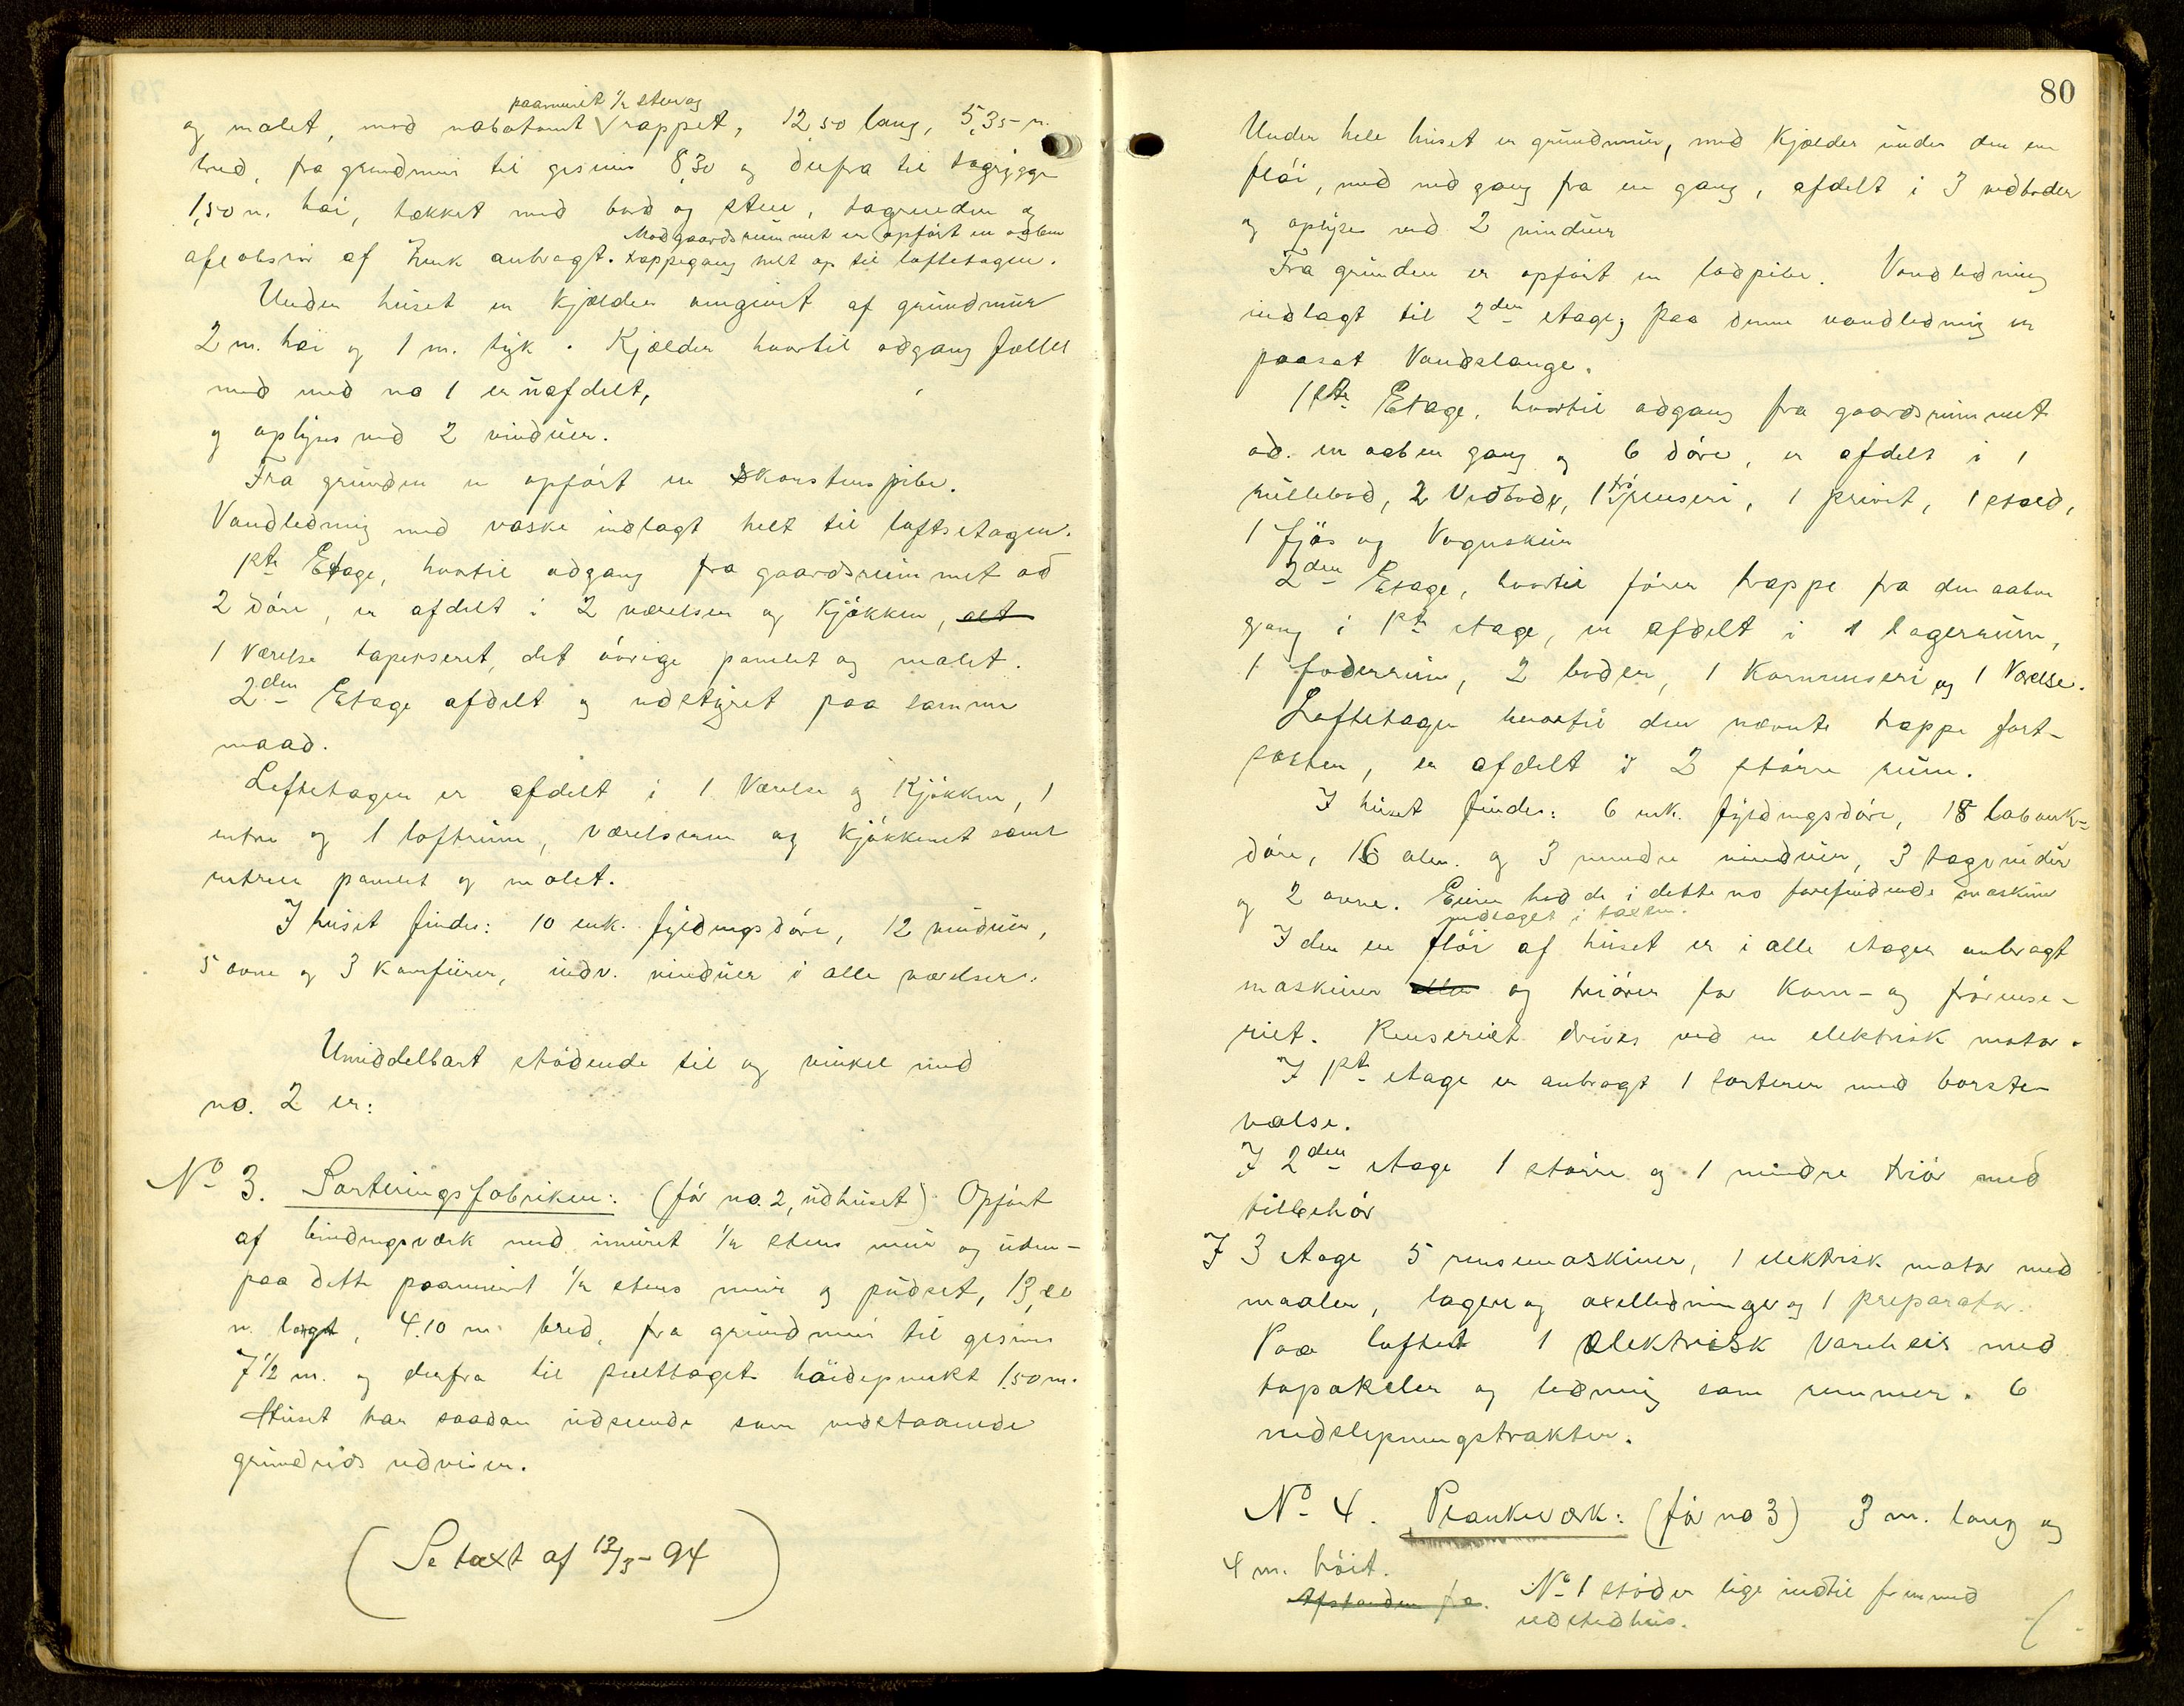 og malet, mod nabotomt paamuret 1/2 sten og rappet, 12,50 lang, 5,35 m.
bred, fra grundmur til gesims 8,30 og derfra til tagrygge
1,50 m. høi, tækket med bord og stene, tagrender og
afløbsrør af zink anbragt. Mod gaardsrummet er opført en aaben
trappegang helt op til loftetagen.
Under huset er kjælder omgivet af grundmur
2 m. høi og 1 m. tyk. Kjælder hvortil adgang fælles
med no 1 er uafdelt,
og oplyses ved 2 vinduer.
Fra grunden er opført en skorstenspibe.
Vandledning med vaske indlagt helt til loftsetagen.
1ste Etage, hvortil adgang fra gaardsrummet ad
2 døre, er afdelt i 2 værelser og kjøkken, alt
1 værelse tapetseret, det øvrige panelet og malet.
2den Etage afdelt og udstyret paa samme
maad.
Loftetagen er afdelt i 1 Værelse og Kjøkken, 1
entre og 1 loftrum, værelserne og kjøkkenet samt
entreen panelet og malet.
I huset findes: 10 enk. fyldingsdøre, 12 vinduer,
5 ovne og 3 komfurer, indv. vinduer i alle værelser.
Umiddelbart stødende til og vinkel med
no. 2 er:
No 3. Sorteringsfabriken: (før no. 2, udhuset) Opført
af bindingsværk med imuret 1/2 stens mur og uden-
paa dette paamuret 1/2 stens mur og pudset, 13,20
m. langt, 4.10 m. bred, fra grundmur til gesims
7 1/2 m. og derfra til pulttagets høidepunkt 1.50 m.
Huset har saadan udseende som vedstaaende
grundrids udviser.
(Se taxt af 12/3-94)
80
Under hele huset er grundmur, med kjælder under den ene
fløi, med nedgang fra en gang, afdelt i 3 vedboder
og oplyses ved 2 vinduer
Fra grunden er opført en lodpibe. Vandledning
indlagt til 2den etage; paa denne vandledning er
paasat Vandslange.
1ste Etage, hvortil adgang fra gaardsrummet
ad en aaben gang og 6 døre, er afdelt i 1
rullebod, 2 Vedboder, 1 frørenseri, 1 privet, 1 stald,
1 fjøs og Vognskur
2den Etage, hvortil fører trappe fra den aabne
gang i 1ste etage, er afdelt i 1 lagerrum,
1 foderrum, 2 boder, 1 Kornrenseri og 1 Værelse.
Loftetagen hvortil den nævnte trappe fort-
sætter, er afdelt i 2 større rum.
I huset findes: 6 enk. fyldingsdøre, 18 labank-
døre, 16 alm. og 3 mindre vinduer, 3 tagvinduer
og 2 ovne. Eieren har de i dette no forefindende maskiner
indtaget i taxten.
I den ene fløi af huset er i alle etager anbragt
maskiner eller og triører for Korn- og frørense-
riet. Renseriet drives ved en elektrisk motor.
I 1ste etage er anbragt 1 sorterer med borste-
valse.
I 2den etage 1 større og 1 mindre triør med
tilbehør
I 3 etage 5 rensemaskiner, 1 elektrisk motor med
maaler, lagere og axelledninger og 1 preparator.
Paa loftet 1 elektrisk Vareheis med
topakeler og ledning som remmer. 6
nedslepningstrakter.
No 4. Plankeværk: (før no 3) 3 m. lang og
4 m. høit.
Afstanden fra. No 1 støder lige indtil fremmed
udstedhus.